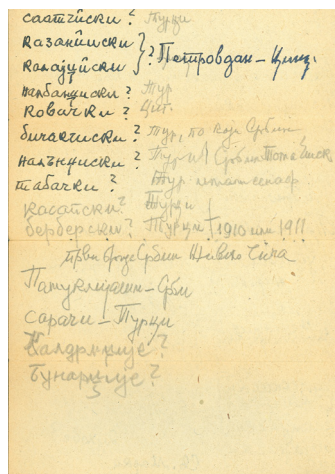 саатчиски? Турци
казанџиски
калајџиски } ? Петровдан – Циг.
налбанциски? Тур
ковачки? Циг.
бичакчиски? Тур, по која Србин
налънџиски? Тур
табачки? Тур. еснаф
касапски? Турци
берберски? Турци } 1910 или 1911
први Србин Живко Чича
Памуклиџии – Срби
сарачи – Турци
Калдрмџије?
Бунарџије?